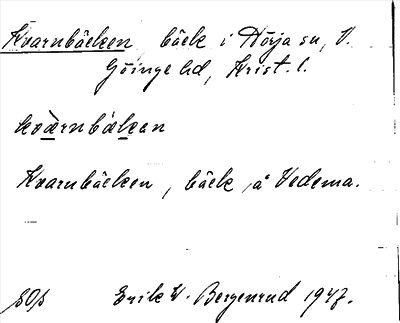 Kvarnbäcken, bäck i Nörja sn, V.
Göinge hd, Krist. l.
kvàrnbækan
Kvarnbäcken, bäck, å Vedema.
SOp Erik W. Bergenrud 1947.